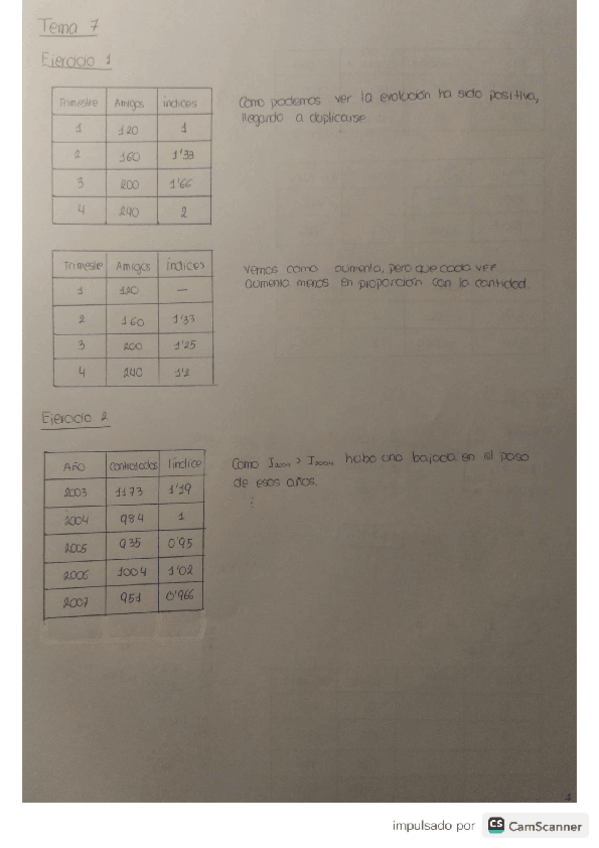 Tema 7
Ejercicio 1
Trimestre Amigos índices
1 120 1
2 160 1'33
3 200 1'66
4 240 2
Como podemos ver la evolución ha sido positiva,
llegando a duplicarse
Trimestre Amigos Índices
1 120 —
2 160 1'33
3 200 1'25
4 240 1'2
Vemos como aumenta, pero que cada vez
aumenta menos en proporción con la cantidad.
Ejercicio 2
AÑO Contratados Índice
2003 1173 1'19
2004 984 1
2005 935 0'95
2006 1004 1'02
2007 951 0'966
Como hubo una bajada en el paso
de esos años.
impulsado por CS CamScanner